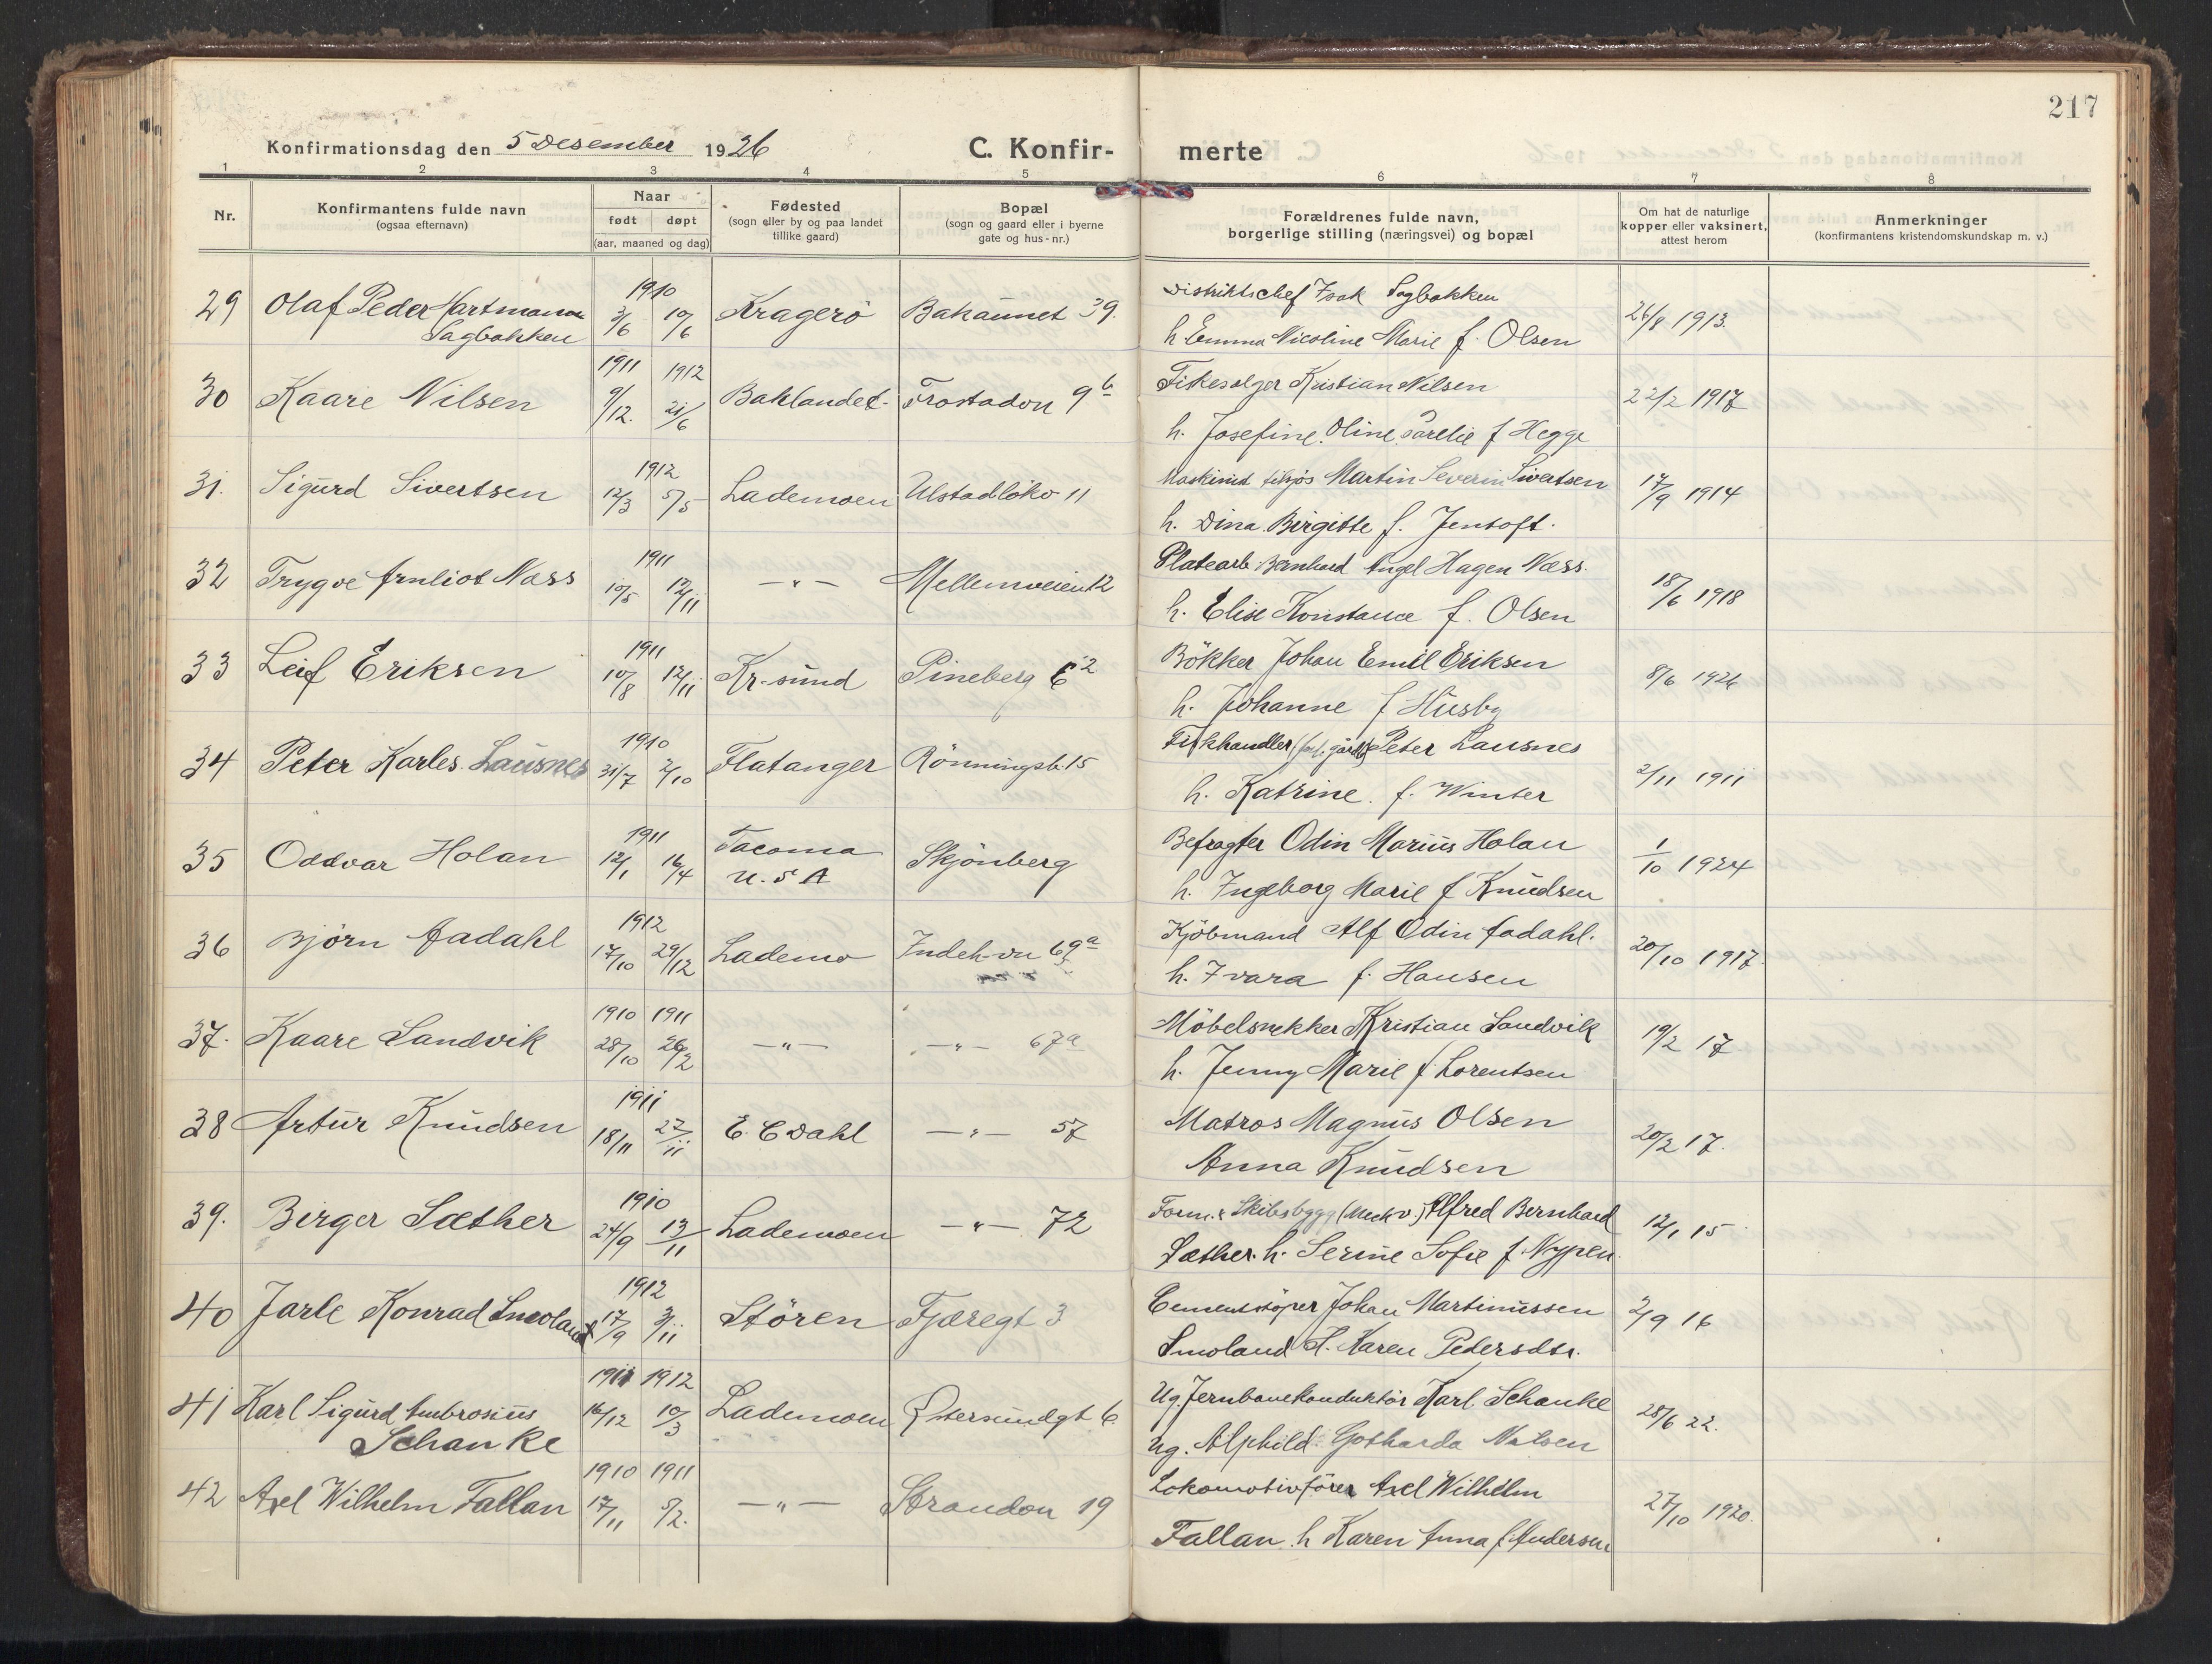 217
Konfirmationsdag den 5 Desember 1926 C. Konfir- merte
1 2 3 4 5 6 7 8
Nr.
Konfirmantens fulde navn
(ogsaa efternavn)
Naar
født døpt
(aar, maaned og dag)
Fødested
(sogn eller by og paa landet
tillike gaard)
Bopæl
(sogn og gaard eller i byerne
gate og hus-nr.)
Forældrenes fulde navn,
borgerlige stilling (næringsvei) og bopæl
Om hat de naturlige
kopper eller vaksinert,
attest herom
Anmerkninger
(konfirmantens kristendomskundskap m. v.)
29 Olaf Peder Hartmann Sagbakken 1910 3/6 10/6 Kragerö Bakaunet 39.
Distriktschef Isak Sagbakken
h. Emma Nicoline Marie f. Olsen
26/8 1913.
30 Kaare Nilsen 1911 9/12. 1912 21/6 Baklandet Frostadvn 9b
Fiskesælger Kristian Nilsen
h. Josefine Oline f Hegge
22/2 1917
31. Sigurd Sivertsen 1912 12/3 5/5 Lademoen Ulstadlökv 11
Maskinist tilsjøs Martin Severin Sivertsen
h. Dina Birgitte f. Jentoft.
17/9 1914
32 Trygve Arnliot Næss 1911 10/5 12/11 —"— Mellemveien 12
Platearb Bernhard Angel Hagen Næss.
h. Elise Konstance f. Olsen
18/6 1918
33 Leif Eriksen 1911 10/8 12/11 Kr-sund Pineberg
Bökker Johan Emil Eriksen
h. Johanne f Husby
8/6 1926
34 Peter Karles Lausnes 1910 31/7 2/10 Flatanger Rönningsb. 15
Fiskhandler Peter Lausnes
h. Katrine f. Winter
2/11 1911
35 Oddvar Holan 1911 12/1 16/4 Tacoma U.S A Skjönberg
Befragter Odin Marius Holan
h. Ingeborg Marie f Knudsen
1/10 1924
36 Björn Aadahl 1912 17/10 29/12 Lademo Indeh-vn 69a
Kjöbmand Alf Odin Aadahl.
h. Ivara f. Hansen
20/10 1917.
37. Kaare Sandvik 1910 28/10 1911 26/2 —"— —"— 67a
Möbelsnekker Kristian Sandvik
h. Jenny Marie f. Lorentsen
19/2 17
38 Artur Knudsen 1911 18/11 27/11 E. C Dahl —"— 57
Matros Magnus Olsen
Anna Knudsen
20/2 17.
39. Birger Sæther 1910 24/9 13/11 Lademoen —"— 72
Form. v Skibsbygg (Mek v.) Alfred Bernhard
Sæther. h. Serine Sofie f. Nypen.
12/1 15
40 Jarle Konrad Smoland 1912 17/9 3/11 Stören Fjæregt 3
Cementstöper Johan Martinussen
Smoland H. Karen Pedersdtr.
2/9 16
41 Karl Sigurd Ambrosius Schanke 1911 16/12 1912 10/3 Lademoen Östersundgt 6.
Ug. Jernbanekonduktör Karl Schanke
ug. Alphild Gotharda Nilsen
28/6 22.
42 Axel Wilhelm Fallan 1910 17/11 1911 5/2. —"— Strandvn 19
Lokomotivförer Axel Wilhelm
Fallan h Karen Anna f. Andersen
27/10 1920.